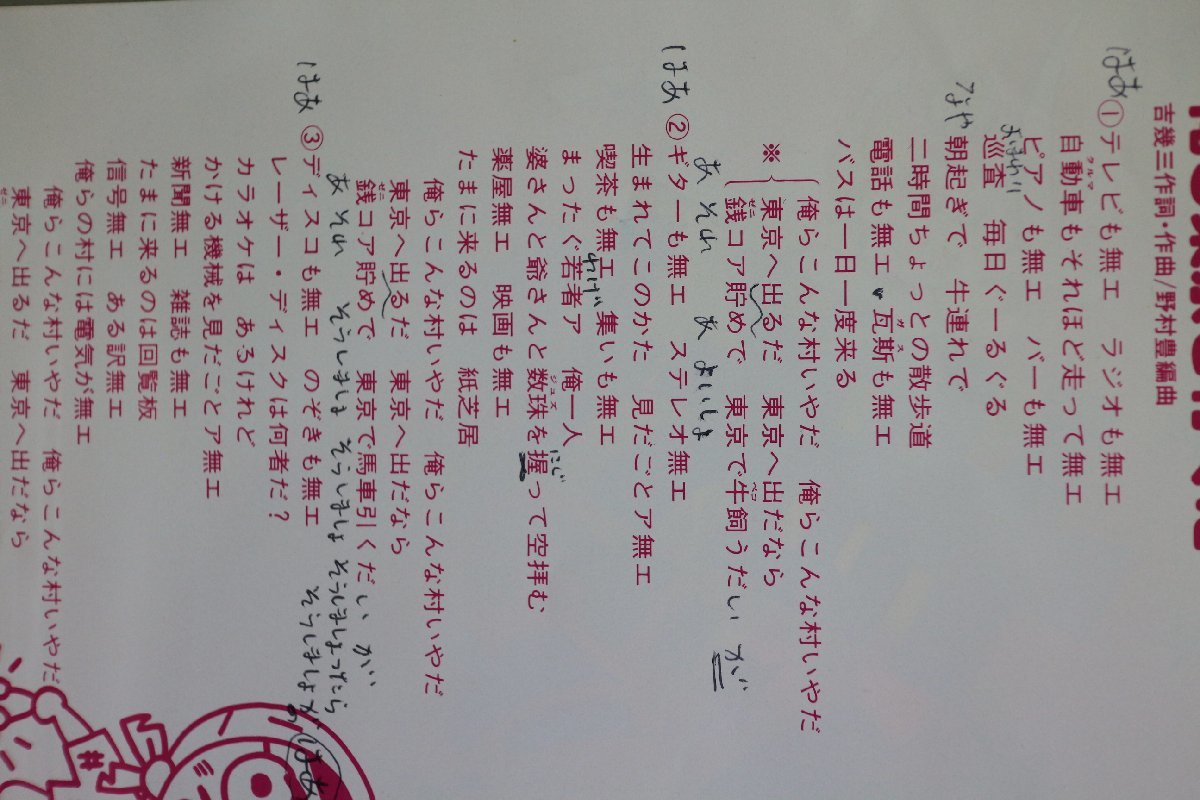 吉幾三作詞・作曲/野村豊編曲
はあ
①テレビも無エ　ラジオも無エ
自動車もそれほど走って無エ
クルマ
ピアノも無エ　バーも無エ
巡査　毎日ぐーるぐる
おまわり
朝起ぎで　牛連れで
二時間ちょっとの散歩道
電話も無エ　瓦斯も無エ
ガス
バスは一日一度来る
俺らこんな村いやだ　俺らこんな村いやだ
※
東京へ出るだ　東京へ出だなら
銭コア貯めで　東京で牛飼うだい
ゼニ
ベコ
が
あ それ　あ よいしょ
はあ
②ギターも無エ　ステレオ無エ
生まれてこのかた　見だごとア無エ
喫茶も無エ　集いも無エ
まったぐ若者ア　俺一人
婆さんと爺さんと数珠を握って空拝む
ジュズ
にぎ
薬屋無エ　映画も無エ
たまに来るのは　紙芝居
俺らこんな村いやだ　俺らこんな村いやだ
東京へ出るだ　東京へ出だなら
銭コア貯めで　東京で馬車引くだい
ゼニ
が
あ それ　そうしましょ そうしましょ そうしましょったら
そうしましょ
はあ
はあ
③ディスコも無エ　のぞきも無エ
レーザー・ディスクは何者だ?
カラオケは　あるけれど
かける機械を見だごとア無エ
新聞無エ　雑誌も無エ
たまに来るのは回覧板
信号無エ　ある訳無エ
俺らの村には電気が無エ
俺らこんな村いやだ　俺らこんな村いやだ
東京へ出るだ　東京へ出だなら
ゼニ